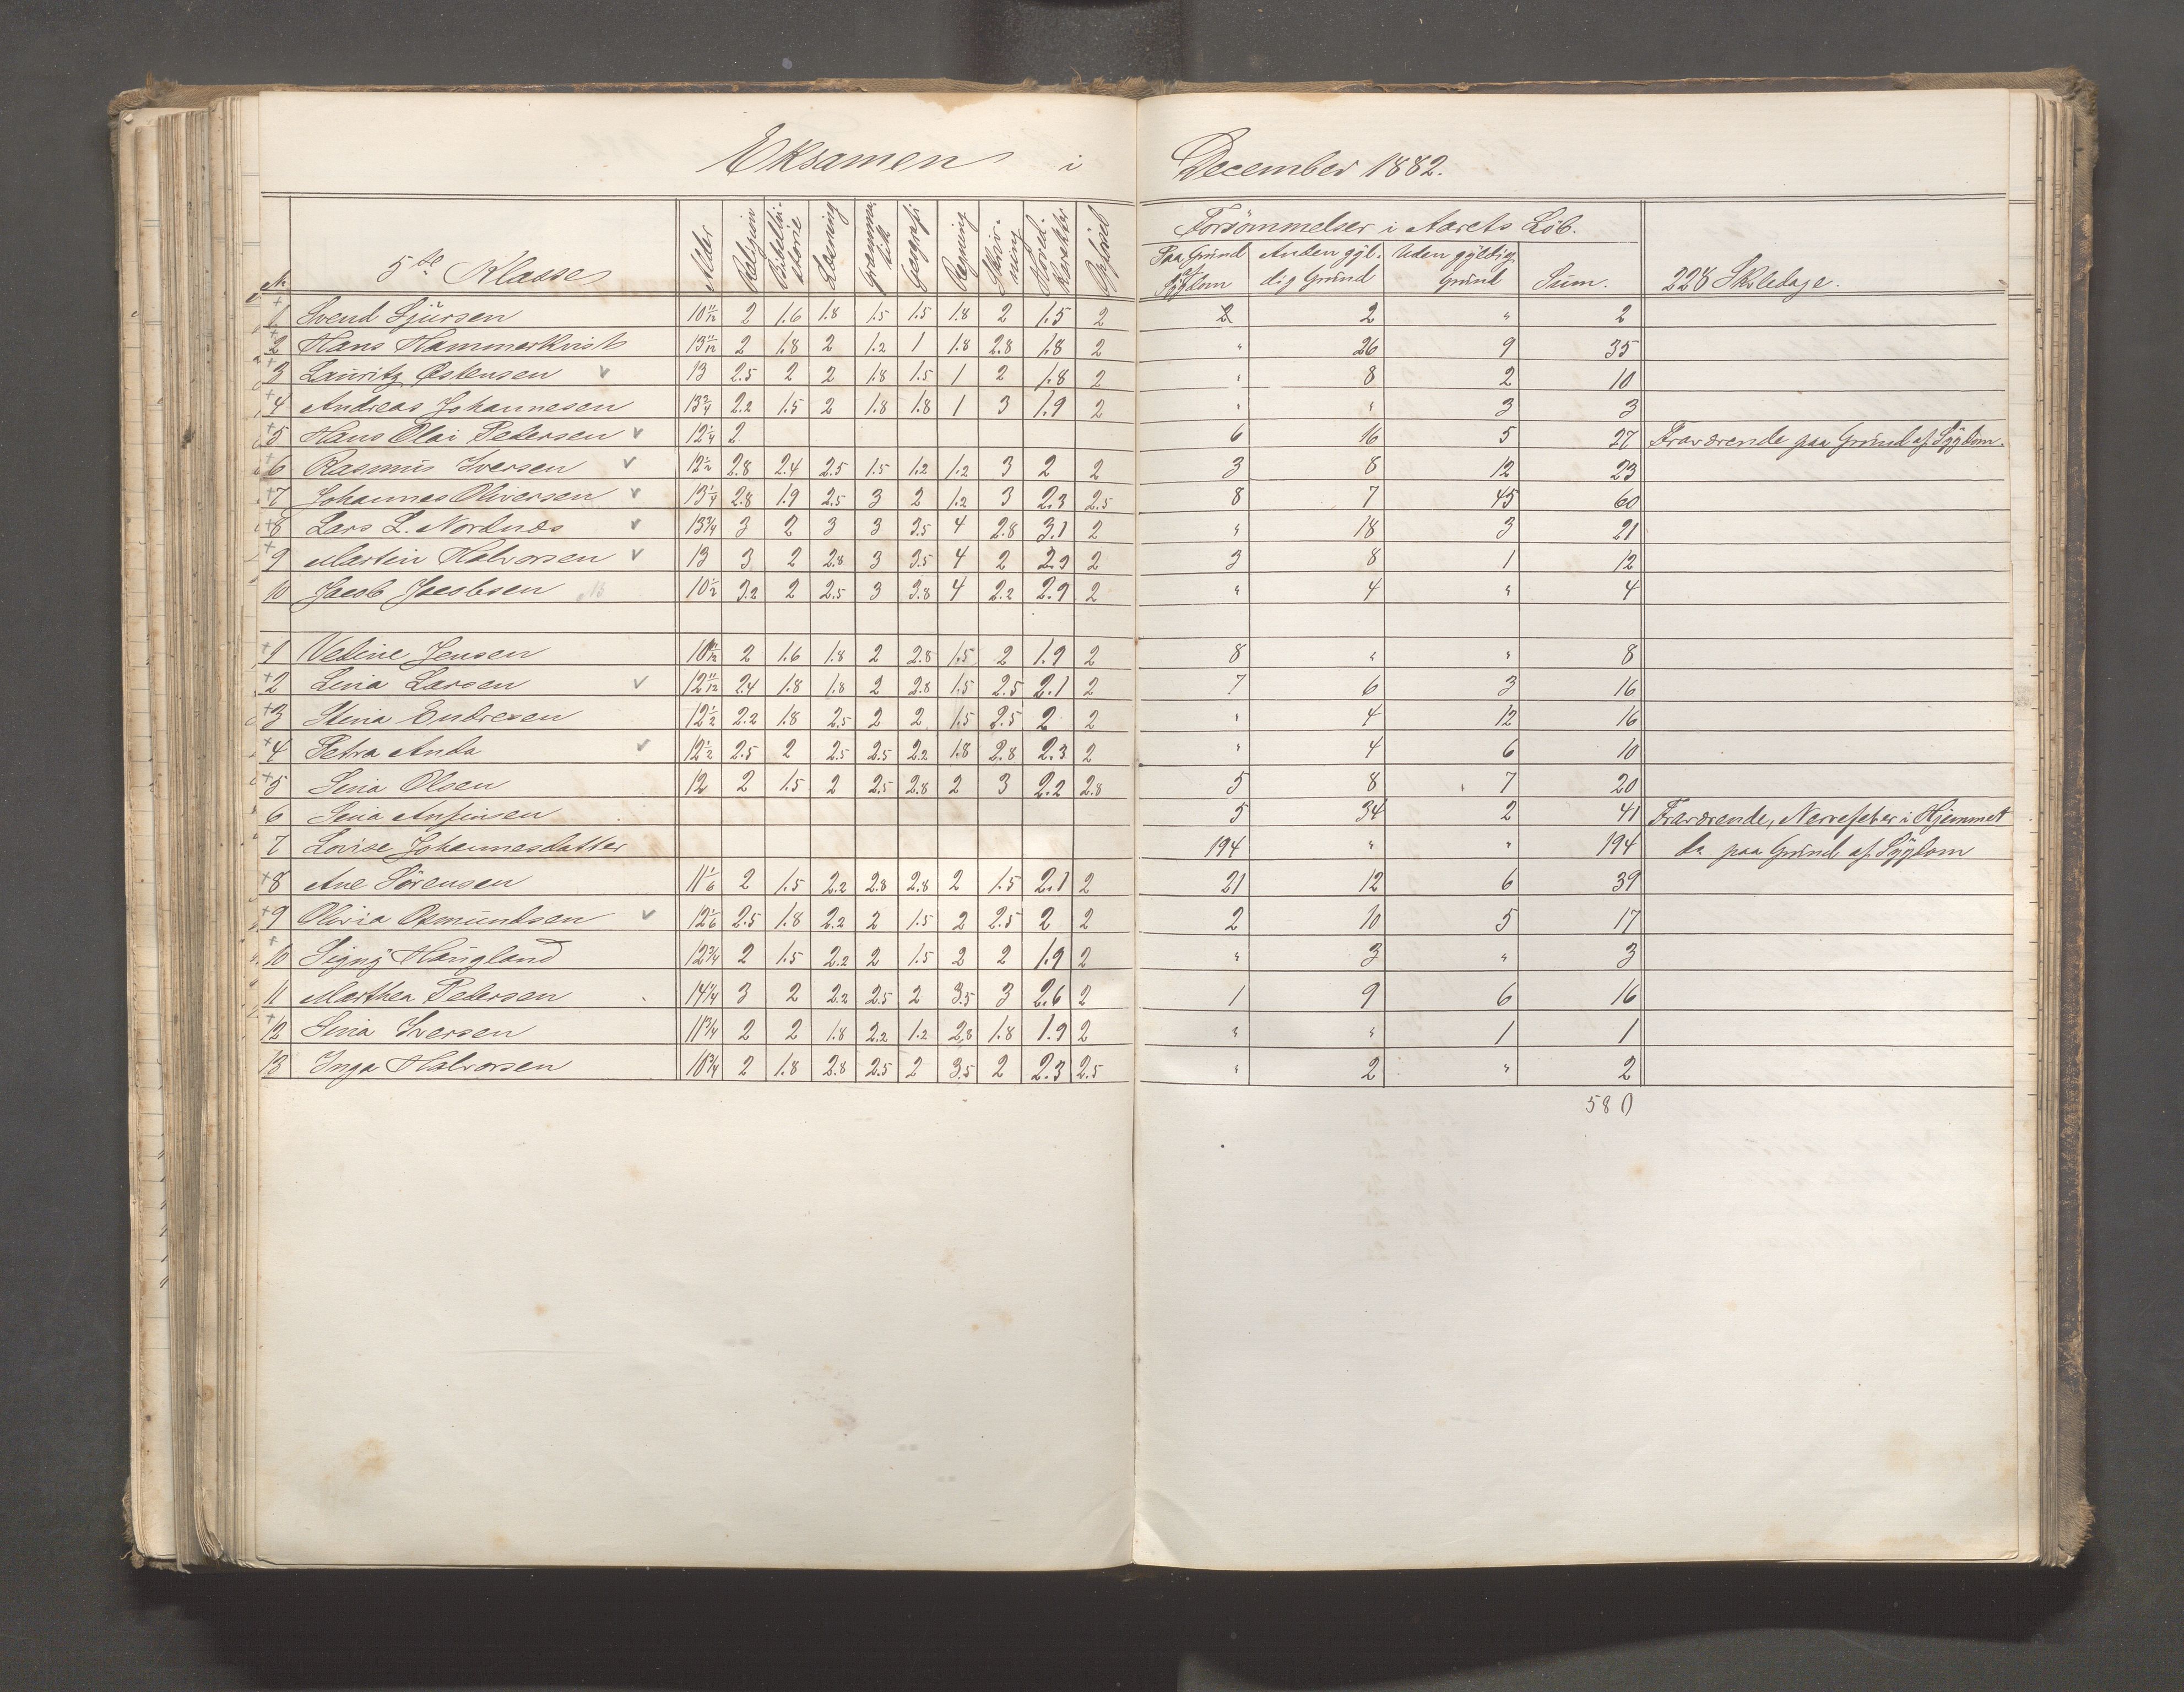 Eksamen i December 1882.
№ 5te Klasse Alder Religion Bibelhistorie Læsning Grammatik Geografi Regning Skrivning Hoved-Karakter Opførsel Forsømmelser i Aarets Løb.
Paa Grund af Sygdom Anden gyldig Grund Uden gyldig Grund Sum. 228 Skoledage.
1 Svend Sjursen 10 11/12 2 1.6 1.8 1.5 1.5 1.8 2 1.5 2 2 2 " 2
2 Hans Hammerkvist 13 11/12 2 1.8 2 1.2 1 1.8 2.8 1.8 2 " 26 9 35
3 Lauritz Østensen v 13 2.5 2 2 1.8 1.5 1 2 1.8 2 " 8 2 10
4 Andreas Johannesen 13 3/4 2.2 1.5 2 1.8 1.8 1 3 1.9 2 " " 3 3
5 Hans Olai Pedersen v 12 1/4 2 6 16 5 27 Fraværende paa Grund af Sygdom.
6 Rasmus Iversen v 12 1/2 2.8 2.4 2.5 1.5 1.2 1.2 3 2 2 3 8 12 23
7 Johannes Oliversen v 13 1/4 2.8 1.9 2.5 3 2 1.2 3 2.3 2.5 8 7 45 60
8 Lars L. Nordnæs v 13 3/4 3 2 3 3 3.5 4 2.8 3.1 2 " 18 3 21
9 Martin Halvorsen v 13 3 2 2.8 3 3.5 4 2 2.9 2 3 8 1 12
10 Jacob Jacobsen 10 1/2 3.2 2 2.5 3 3.8 4 2.2 2.9 2 " 4 " 4
1 Veline Jensen 10 11/12 2 1.6 1.8 2 2.8 1.5 2 1.9 2 8 " " 8
2 Lina Larsen v 12 11/12 2.4 1.8 1.8 2 2.8 1.5 2.5 2.1 2 7 6 3 16
3 Stina Endresen 12 1/2 2.2 1.8 2.5 2 2 1.5 2.5 2 2 " 4 12 16
4 Petra Anda v 12 1/2 2.5 2 2.5 2.5 2.2 1.8 2.8 2.3 2 " 4 6 10
5 Sina Olsen 12 2 1.5 2 2.5 2.8 2 3 2.2 2.8 5 8 7 20
6 Sina Anfinsen 5 34 2 41 Fraværende, Nervefeber i Hjemmet
7 Lovise Johannesdatter 194 " " 194 do paa Grund af Sygdom
8 Ane Sørensen 11 1/6 2 1.5 2.2 2.8 2.8 2 1.5 2.1 2 21 12 6 39
9 Olivia Osmundsen v 12 1/6 2.5 1.8 2.2 2 1.5 2 2.5 2 2 2 10 5 17
10 Signy Haugland 12 3/4 2 1.5 2.2 2 1.5 2 2 1.9 2 " 3 " 3
11 Marthea Pedersen 14 1/4 3 2 2.2 2.5 2 3.5 3 2.6 2 1 9 6 16
12 Sina Iversen 11 3/4 2 2 1.8 2.2 1.2 2.8 1.8 1.9 2 " " 1 1
13 Inga Halvorsen 10 3/4 2 1.8 2.8 2.5 2 3.5 2 2.3 2.5 " 2 " 2
580